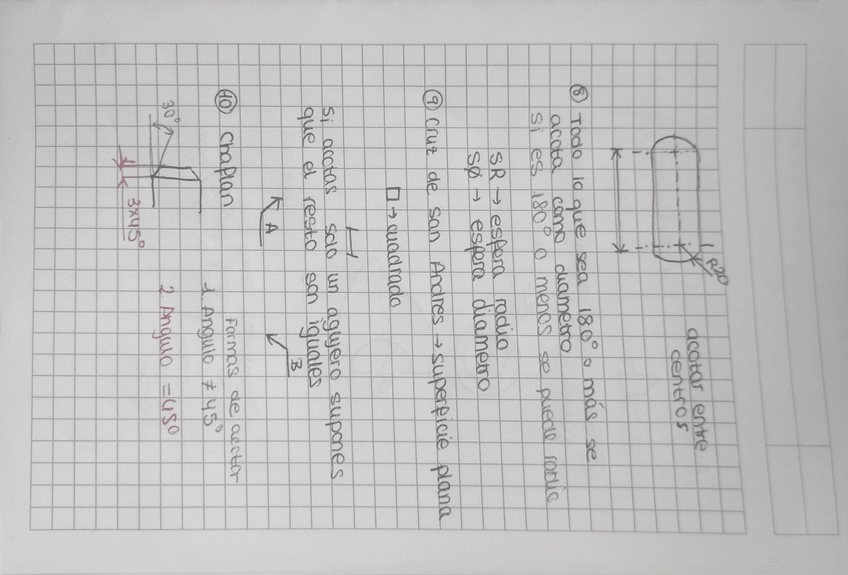 R20
acotar entre
centros
8 Todo lo que sea 180° o más se
acota como diametro
si es 180° o menos se puede radio
SR → esfera radio
SØ → esfera diametro
9 cruz de san Andres → superficie plana
□ → cuadrado
si acotas solo un agujero supones
que el resto son iguales
A
B
10 chaflan
Formas de acotar
1. Angulo ≠ 45°
2. Angulo = 45°
30°
3x45°